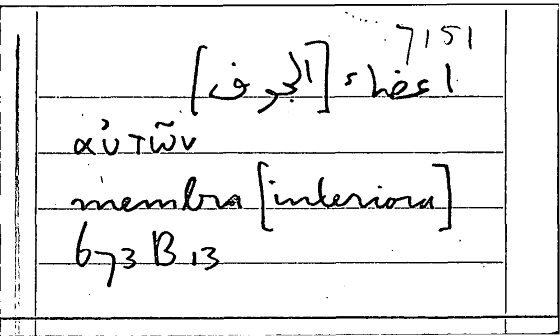 7151
اعضاء [الجوف]
αὐτῶν
membra [interiora]
673 B 13